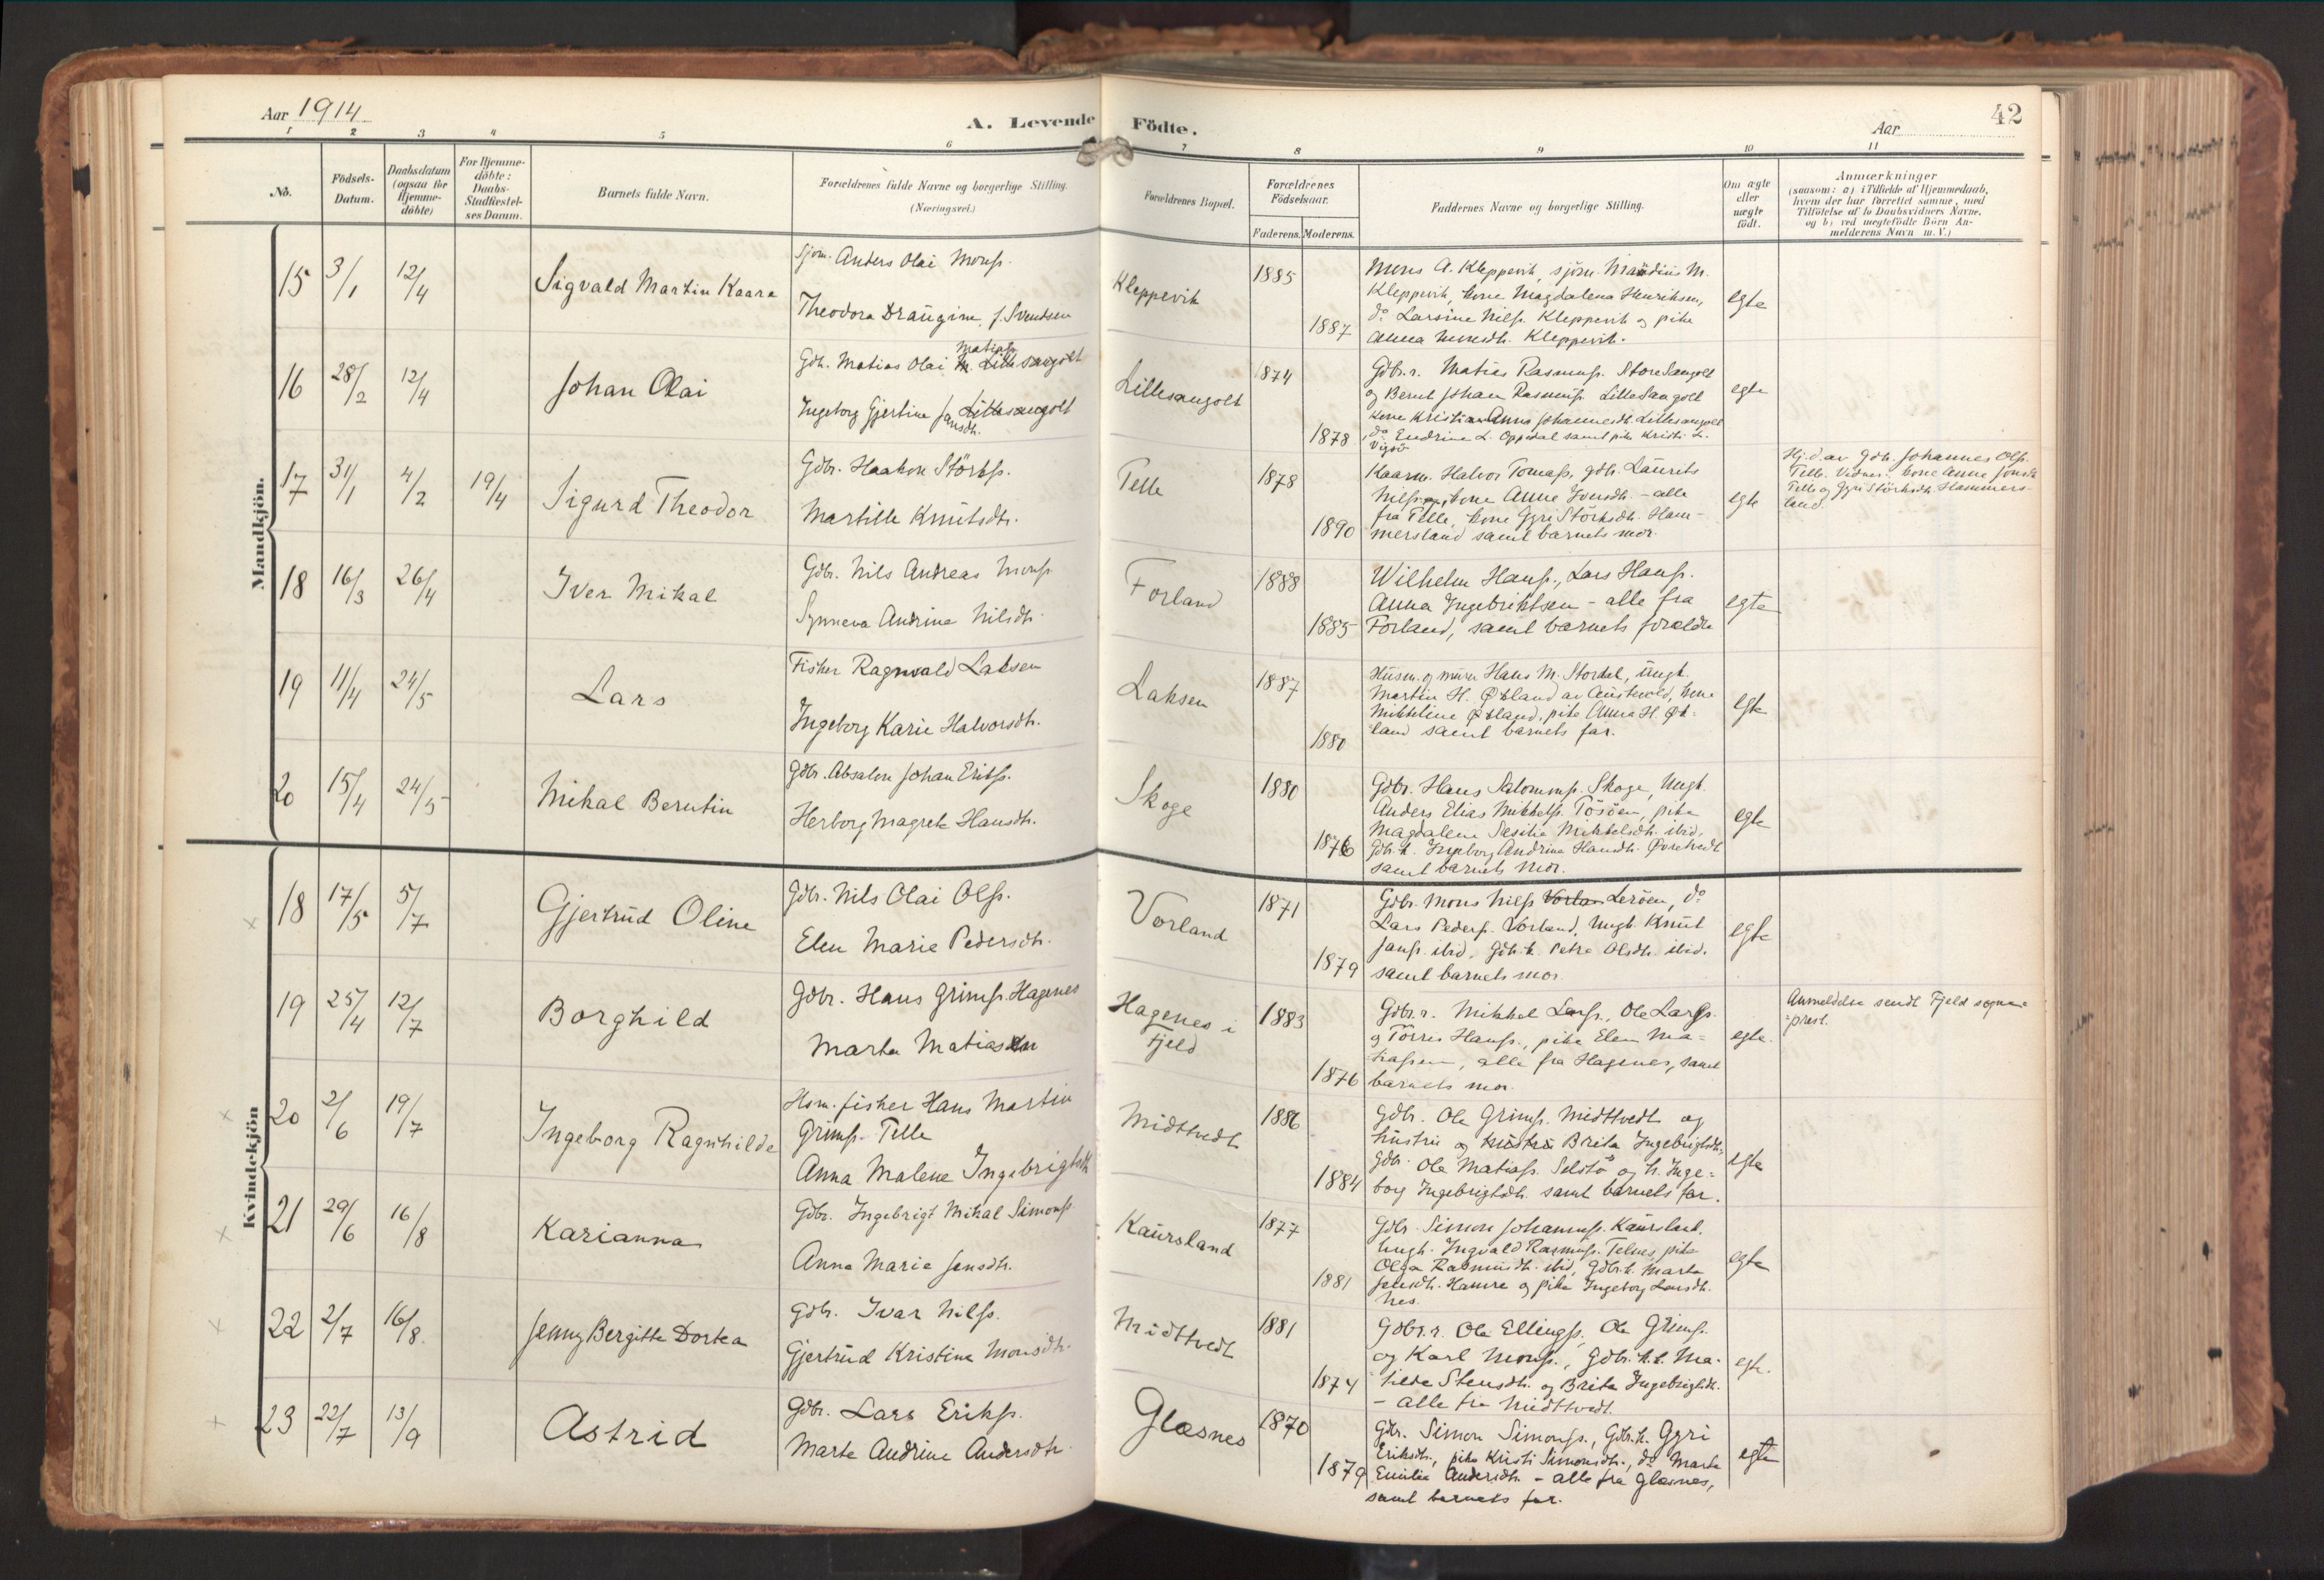 Aar 1914
A. Levende Födte.
Aar
42
1 2 3 4 5 6 7 8 9 10 11
No.
Födsels-Datum.
Daabsdatum (ogsaa for Hjemme-döbte)
For Hjemme-döbte: Daabs-Stadfæstel-ses Datum.
Barnets fulde Navn.
Forældrenes fulde Navne og borgerlige Stilling. (Næringsvei.)
Forældrenes Bopæl.
Forældrenes Födselsaar.
Faderens. Moderens.
Faddernes Navne og borgerlige Stilling.
Om ægte eller uægte födt.
Anmærkninger
(saasom: a) i Tilfælde af Hjemmedaab, hvem der har forrettet samme, med Tilföielse af to Daabsvidners Navne, og b) ved uegtefödte Börn An-melderens Navn m. V.)
Mandkjön.
15 3/1 12/4 Sigvald Martin Kaare
Sjöm. Anders Olai Monss.
Theodora Draugine f. Svendsen
Kleppevik 1885 1887
Mons A. Kleppevik, sjöm. M.
Kleppevik, kone Magdalena Henriksen,
do Larsine Nilss. Kleppevik og pike
Anna Monsdtr. Kleppevik.
egte
16 28/2 12/4 Johan Olai
Gdb. Matias Olai Matiass. Lillesangolt
Ingeborg Gjertine Jansdtr. Lillesangolt
Lillesangolt 1874 1878
Gdbr.r. Matias Rasmuss. Store Sangolt
og Bernt Johan Rasmuss. Lille Sangolt
kone Kristi Anna Johannesdtr. Lillesangolt
do Endrine L. Oppedal samt pike Kristi L.
Vigsö
egte
17 31/1 4/2 19/4 Sigurd Theodor
Gdbr. Haakon Störkss.
Martille Knutsdtr.
Telle 1878 1890
Kaarm. Halvor Tomass, gdb. Laurits
Nilss. og kone Anne Iversdtr. - alle
fra Telle, kone Gyri Störksdtr. Ham-
mersland samt barnets mor.
egte
Hj.d. av Gdb. Johannes Olss.
Telle. Vidner: kone Anne Jonsdtr
Telle og Gyri Störksdtr. Hammers-
land.
18 16/3 26/4 Iver Mikal
Gdb. Nils Andreas Monss.
Synneva Andrine Nilsdtr.
Forland 1888 1885
Wilhelm Hanss., Lars Hanss.
Anna Ingebriktsen - alle fra
Forland, samt barnets foreldre
egte
19 11/4 24/5 Lars
Fisker Ragnvald Laksen
Ingeborg Karie Halvorsdtr.
Laksen 1887 1880
Husm. og murer Hans M. Stordal, ungk.
Martin H. Økland av Austevold, kone
Mikkeline Økland, pike Anna H. Øk-
land samt barnets far.
egte
20 15/4 24/5 Mikal Berntin
Gdbr. Absalon Johan Erikss.
Herborg Magrete Hansdtr.
Skoge 1880 1876
Gdbr. Hans Salomons. Skoge, Ungk.
Anders Elias Mikkels. Tösöen, pike
Magdalene Sesilie Mikkelsdtr. ibid,
Gdb.k. Ingeborg Andrine Hansdtr. Øvretvedt
samt barnets mor.
egte
Kvindekjön
18 17/5 5/7 Gjertrud Oline
Gdbr. Nils Olai Olss.
Elen Marie Pedersdtr.
Vorland 1871 1879
Gdbr. Mons Nilss Leröen, do
Lars Peders. Vorland, Ungk. Knut
Janss. ibid, Gdb.k. Petra Olsdtr. ibid.
samt barnets mor.
egte
19 25/4 12/7 Borghild
Gdbr. Hans Grimss. Hagenes
Marta Matiasen
Hagenes i Fjeld 1883 1876
Gdbr.r. Mikkel Larss., Ole Larss.
og Törres Hanss., pike Elen Ma-
tiassen, alle fra Hagenes, samt
barnets mor.
egte.
Anmeldelse sendt Fjeld sogne-
prest.
20 2/6 19/7 Ingeborg Ragnhilde
Hsm. fisker Hans Martin
Grimss. Telle
Anna Malene Ingebrigtsdtr
Midttvedt 1886 1884
Gdbr. Ole Grimss. Midttvedt og
hustru og hustru Brita Ingebrigtsdtr,
Gdbr. Ole Matiass. Selstö og h. Inge-
borg Ingebrigtsdtr. samt barnets far.
egte
21 29/6 16/8 Karianna
Gdbr. Ingebrigt Mikal Simonss.
Anna Marie Jensdtr.
Kaursland 1877 1881
Gdbr Simon Johanness. Kaursland,
Ungk. Ingvald Rasmuss. Telnes, pike
Olga Rasmusdtr. ibid, Gdb.k. Marta
Jensdtr. Hamre og pike Ingeborg Larsdtr.
Nes.
egte
22 2/7 16/8 Jenny Bergitte Dortea
Gdb. Ivar Nilss.
Gjertrud Kristine Monsdtr.
Midttvedt 1881 1874
Gdbr.r. Ole Ellingss, Ole Grimss.
og Karl Monss., Gdb.k.k. Ma-
tilde Stensdtr. og Brita Ingebrigtsdtr.
- alle fra Midttvedt.
egte.
23 22/7 13/9 Astrid
Gdbr. Lars Erikss.
Marta Andrine Andersdtr.
Glæsnes 1870 1879
Gdbr. Simon Simonss., Gdb.k. Gyri
Eriksdtr., pike Kristi Simonsdtr., do Marta
Emilie Andersdtr. - alle fra Glæsnes,
samt barnets far.
egte